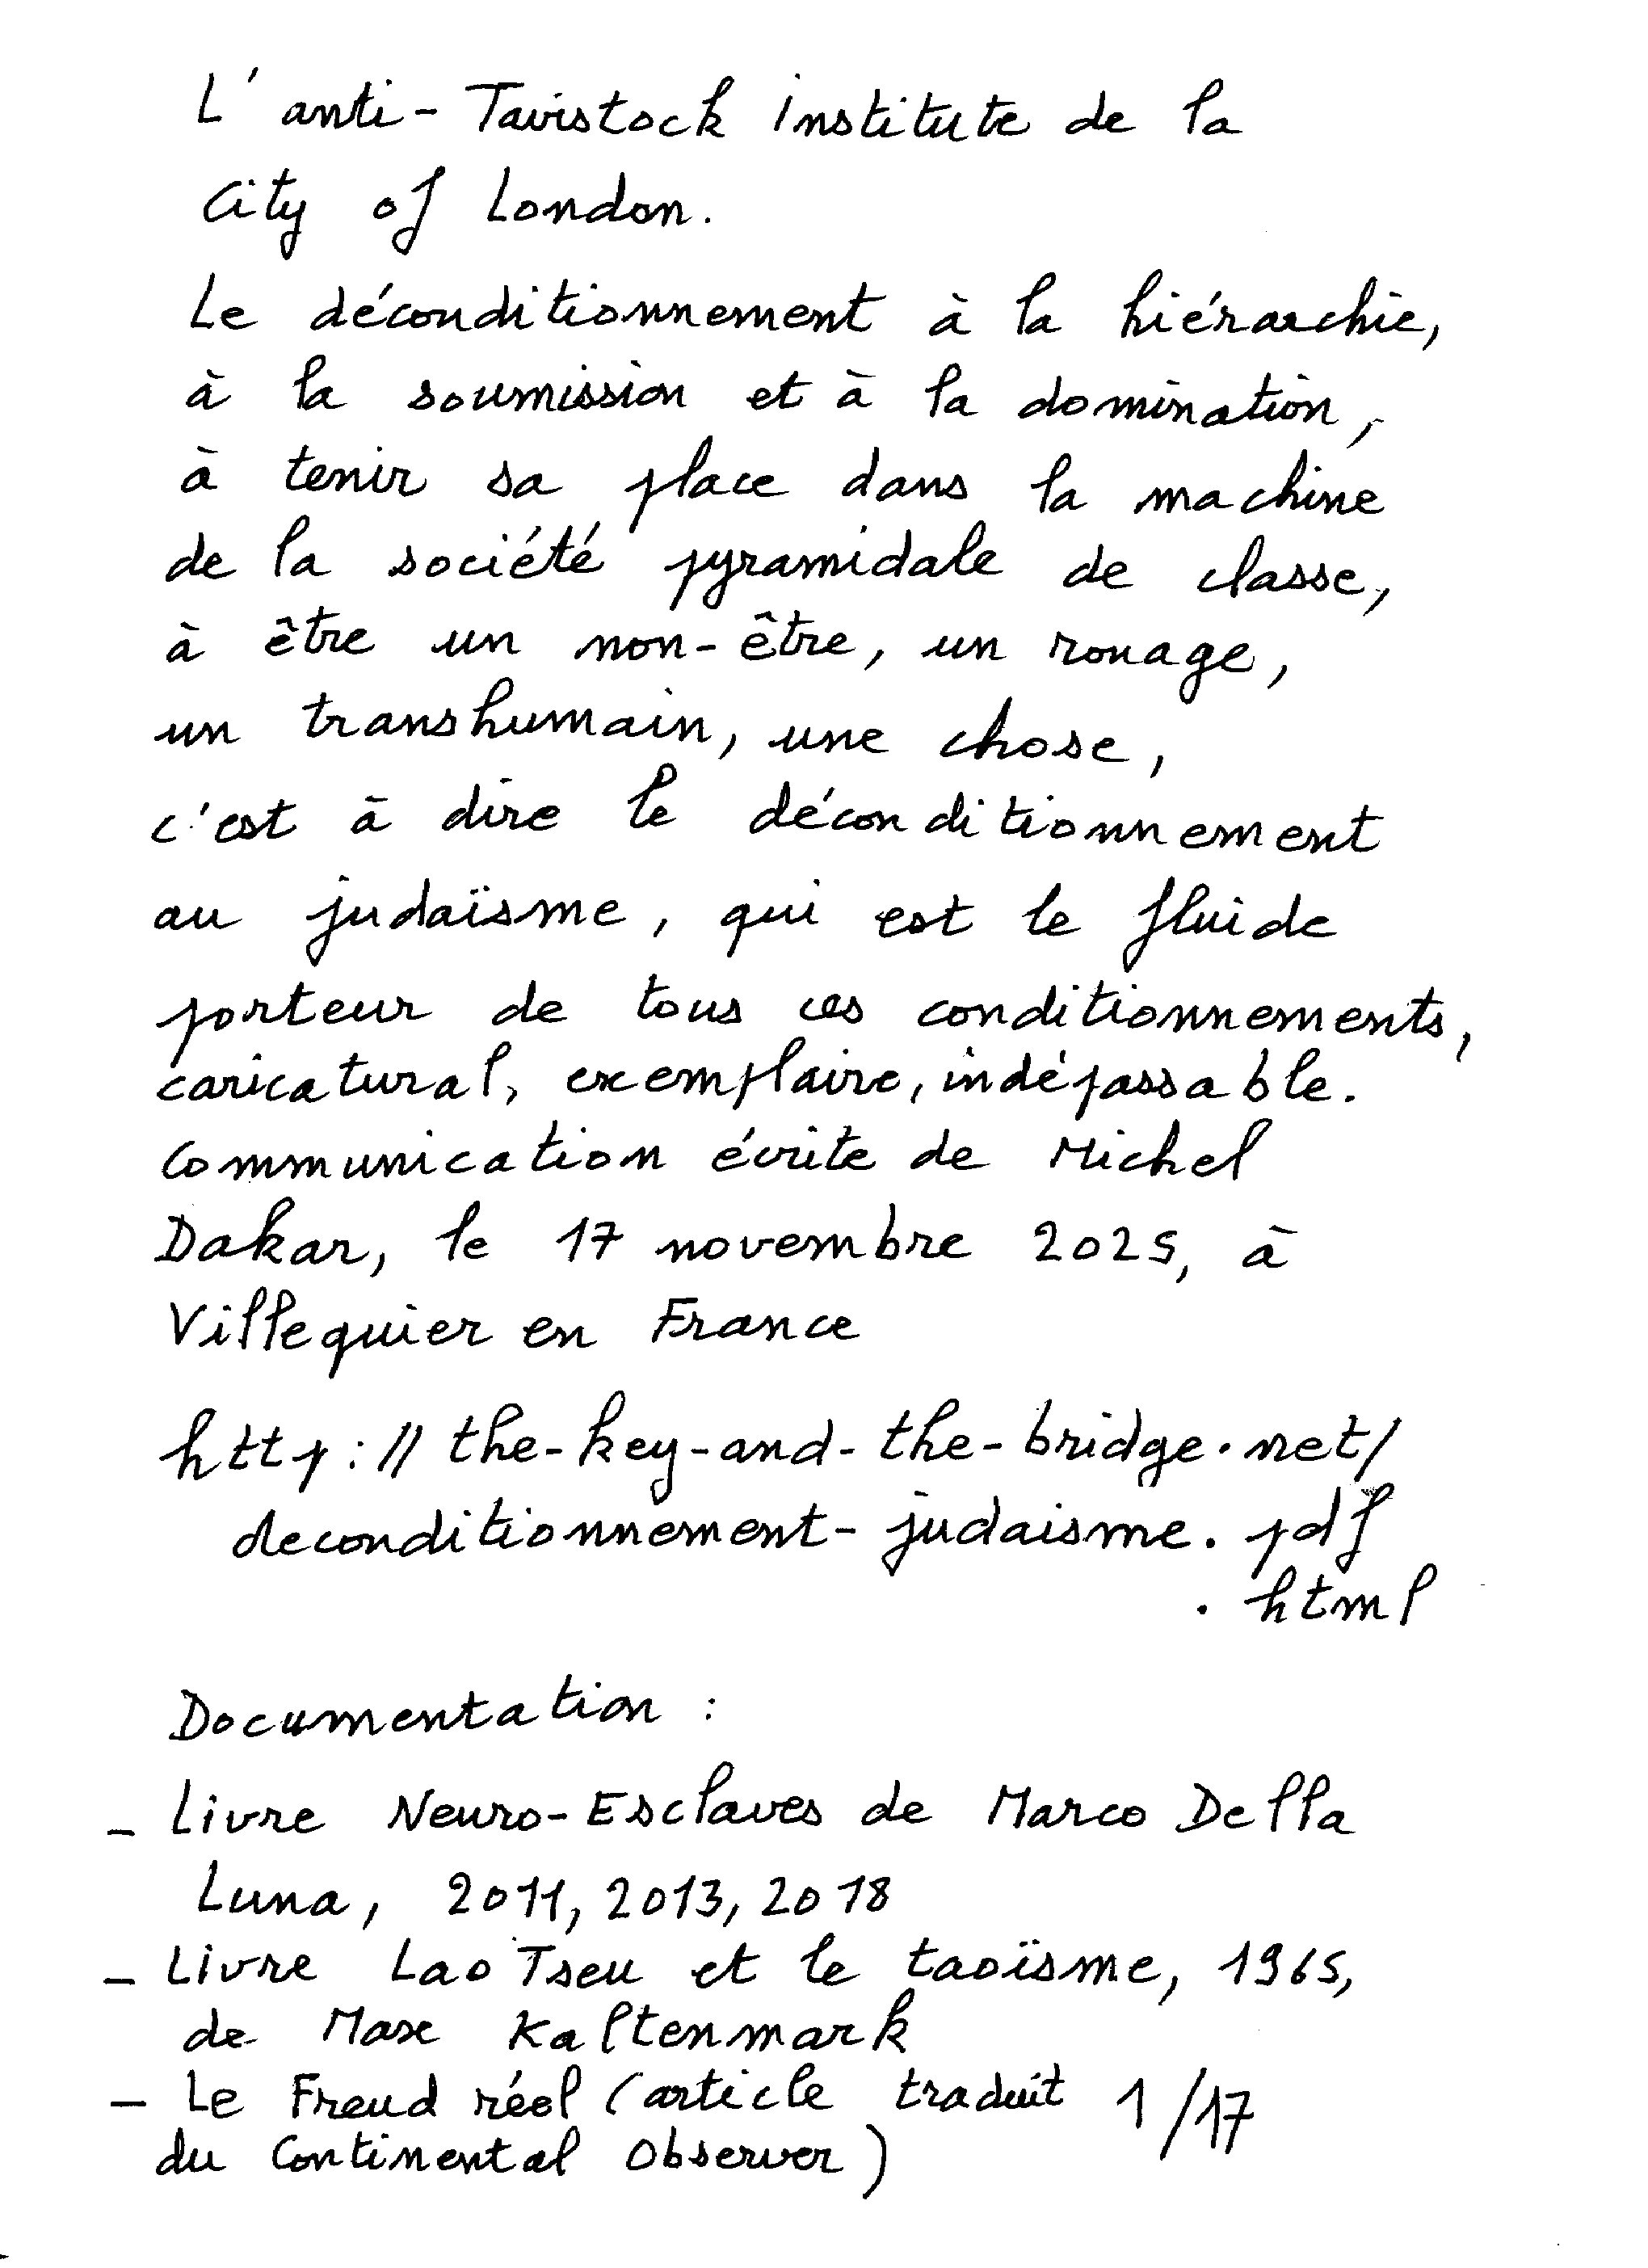 L'anti-Tavistock Institute de la
City of London.
Le déconditionnement à la hiérarchie,
à la soumission et à la domination,
à tenir sa place dans la machine
de la société pyramidale de classe,
à être un non-être, un rouage,
un transhumain, une chose,
c'est à dire le déconditionnement
au judaïsme, qui est le fluide
porteur de tous ces conditionnements,
caricatural, exemplaire, indépassable.
Communication écrite de Michel
Dakar, le 17 novembre 2025, à
Villequier en France
http://the-key-and-the-bridge.net/
deconditionnement-judaisme.pdf
.html
Documentation :
- Livre Neuro-Esclaves de Marco Della
Luna, 2011, 2013, 2018
- Livre Lao Tseu et le taoïsme, 1965,
de Max Kaltenmark
- Le Freud réel (article traduit
du Continental Observer)
1/17